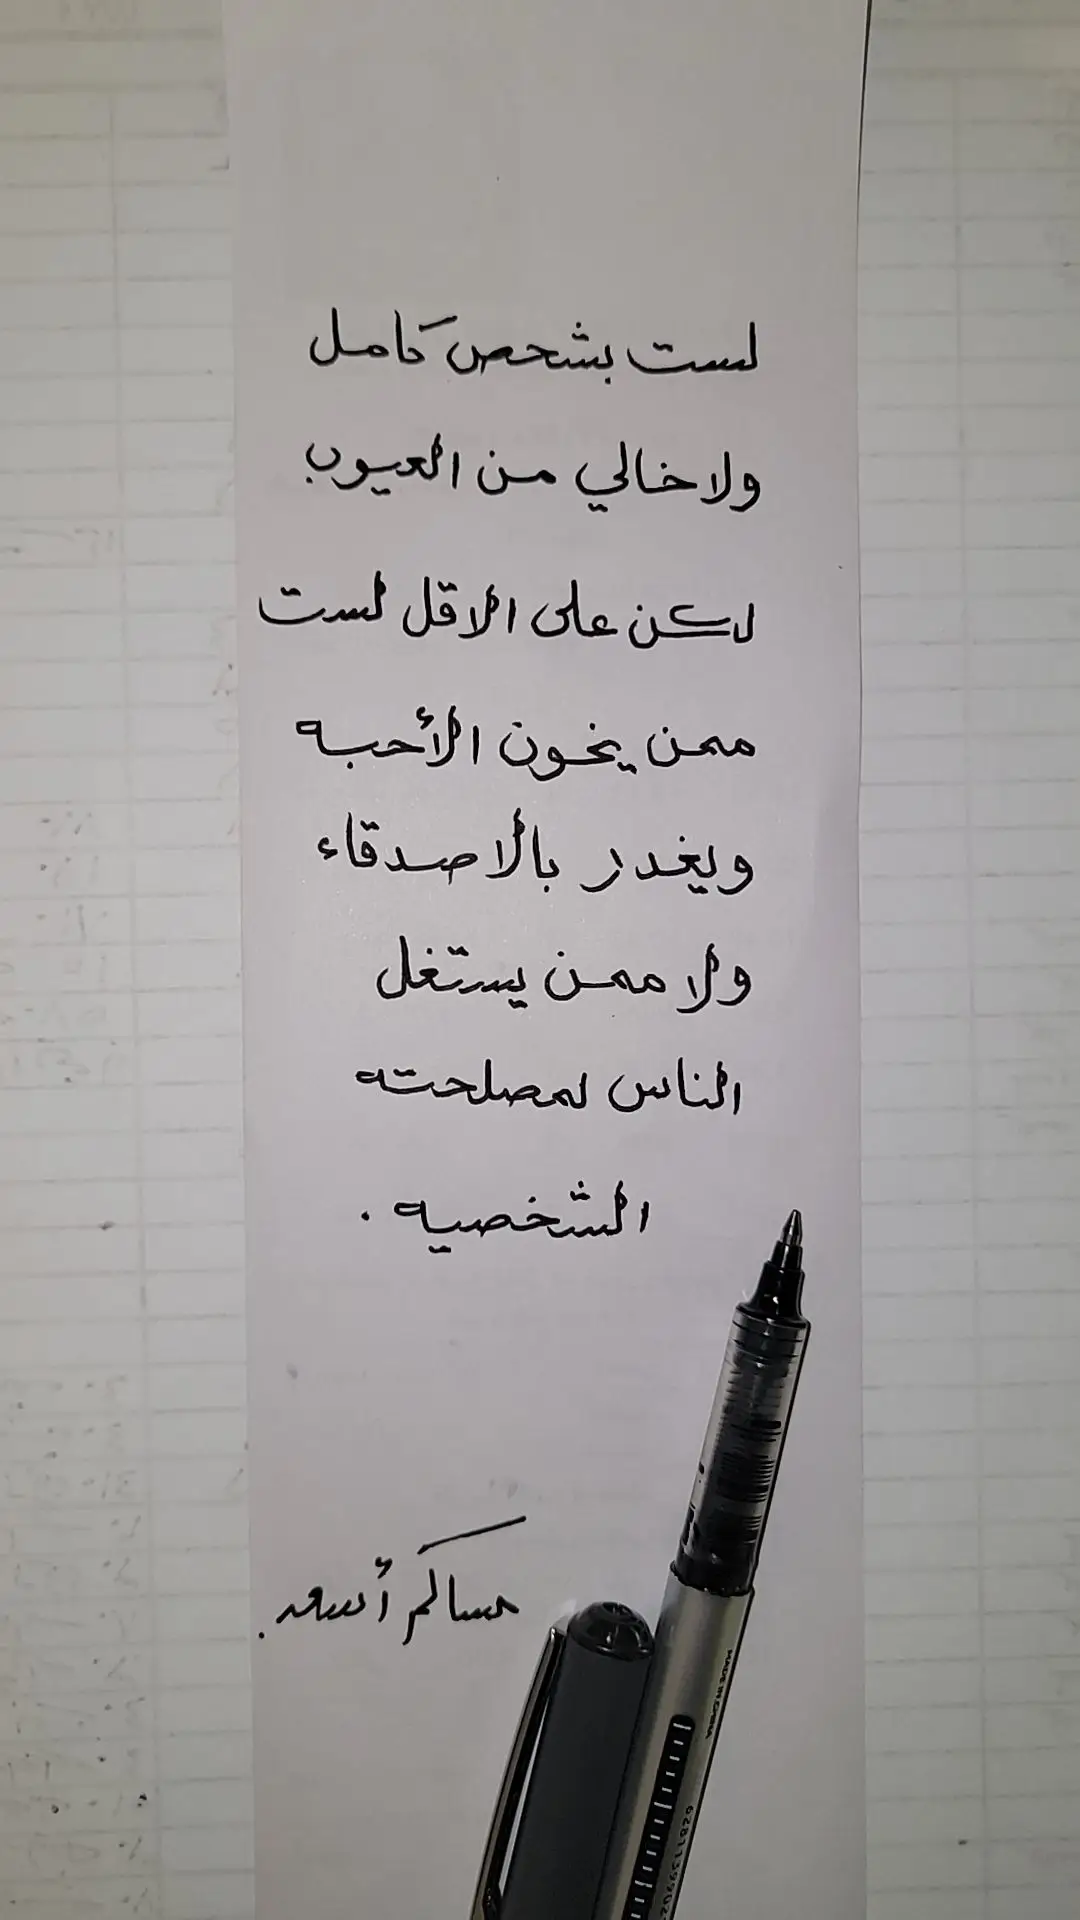 لست بشخص كامل
ولا خالي من العيوب
لكن على الاقل لست
ممن يخون الأحبه
ويغدر بالأصدقاء
ولا ممن يستغل
الناس لمصلحته
الشخصيه .
سالم أسعد
MADE IN CHINA